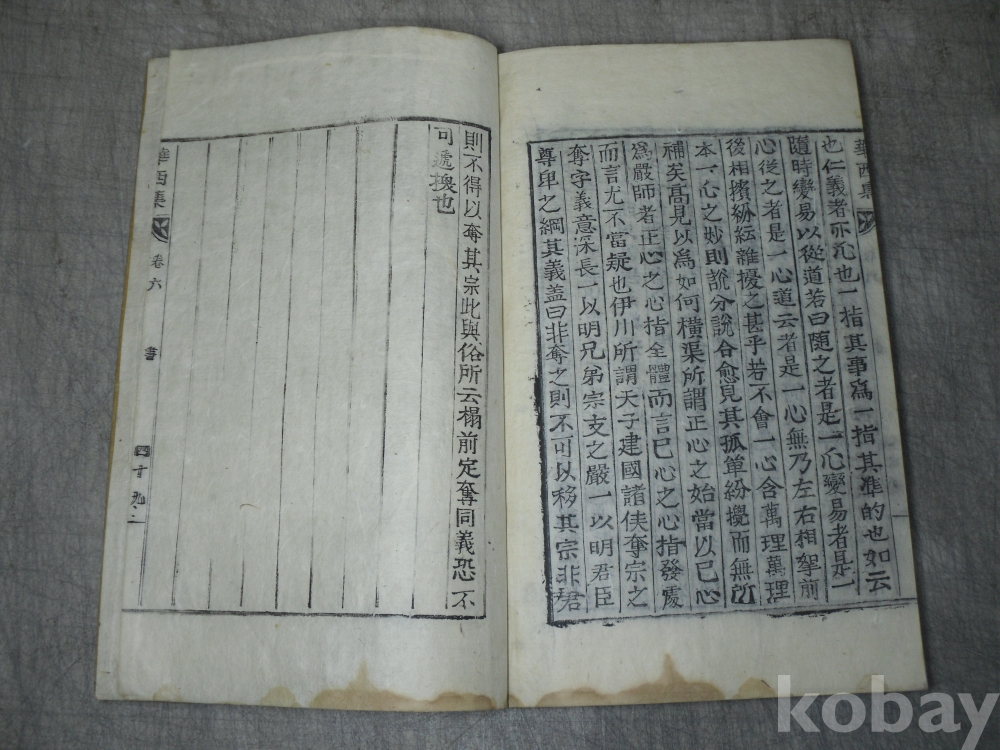 也仁義者亦心也一指其事爲一指其準的也如云
隨時變易以從道若曰隨之者是一心變易者是一
心從之者是一心道云者是一心無乃左右相挐前
後相擯紛紜離擾之甚乎若不會一心含萬理萬理
本一心之妙則說分說合愈見其孤單紛攪而無所
補矣高見以爲如何橫渠所謂正心之始當以己心
爲嚴師者正心之心指全體而言己心之心指發處
而言尤不當疑也伊川所謂天子建國諸侯奪宗之
奪字義意深長一以明兄弟宗支之嚴一以明君臣
尊卑之綱其義盖曰非奪之則不可以移其宗非君
華西集
則不得以奪其宗此與俗所云榻前定奪同義恐不
可遞換也
華西集 卷六 書 四十九
kobay